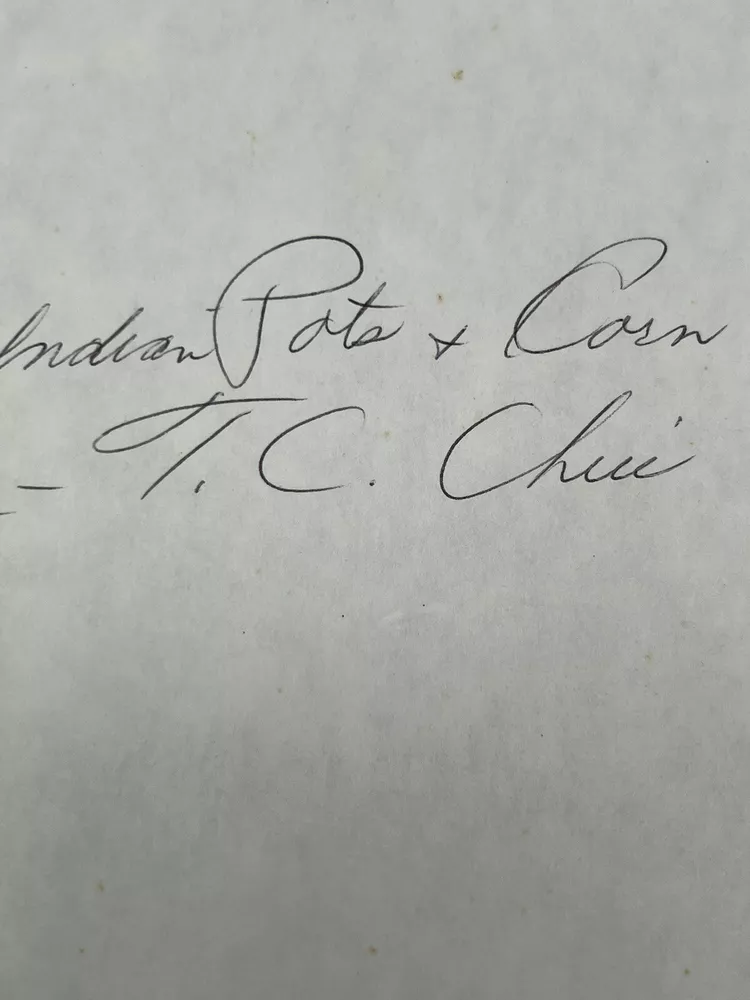 Indian Pots + Corn
- T. C. Chui